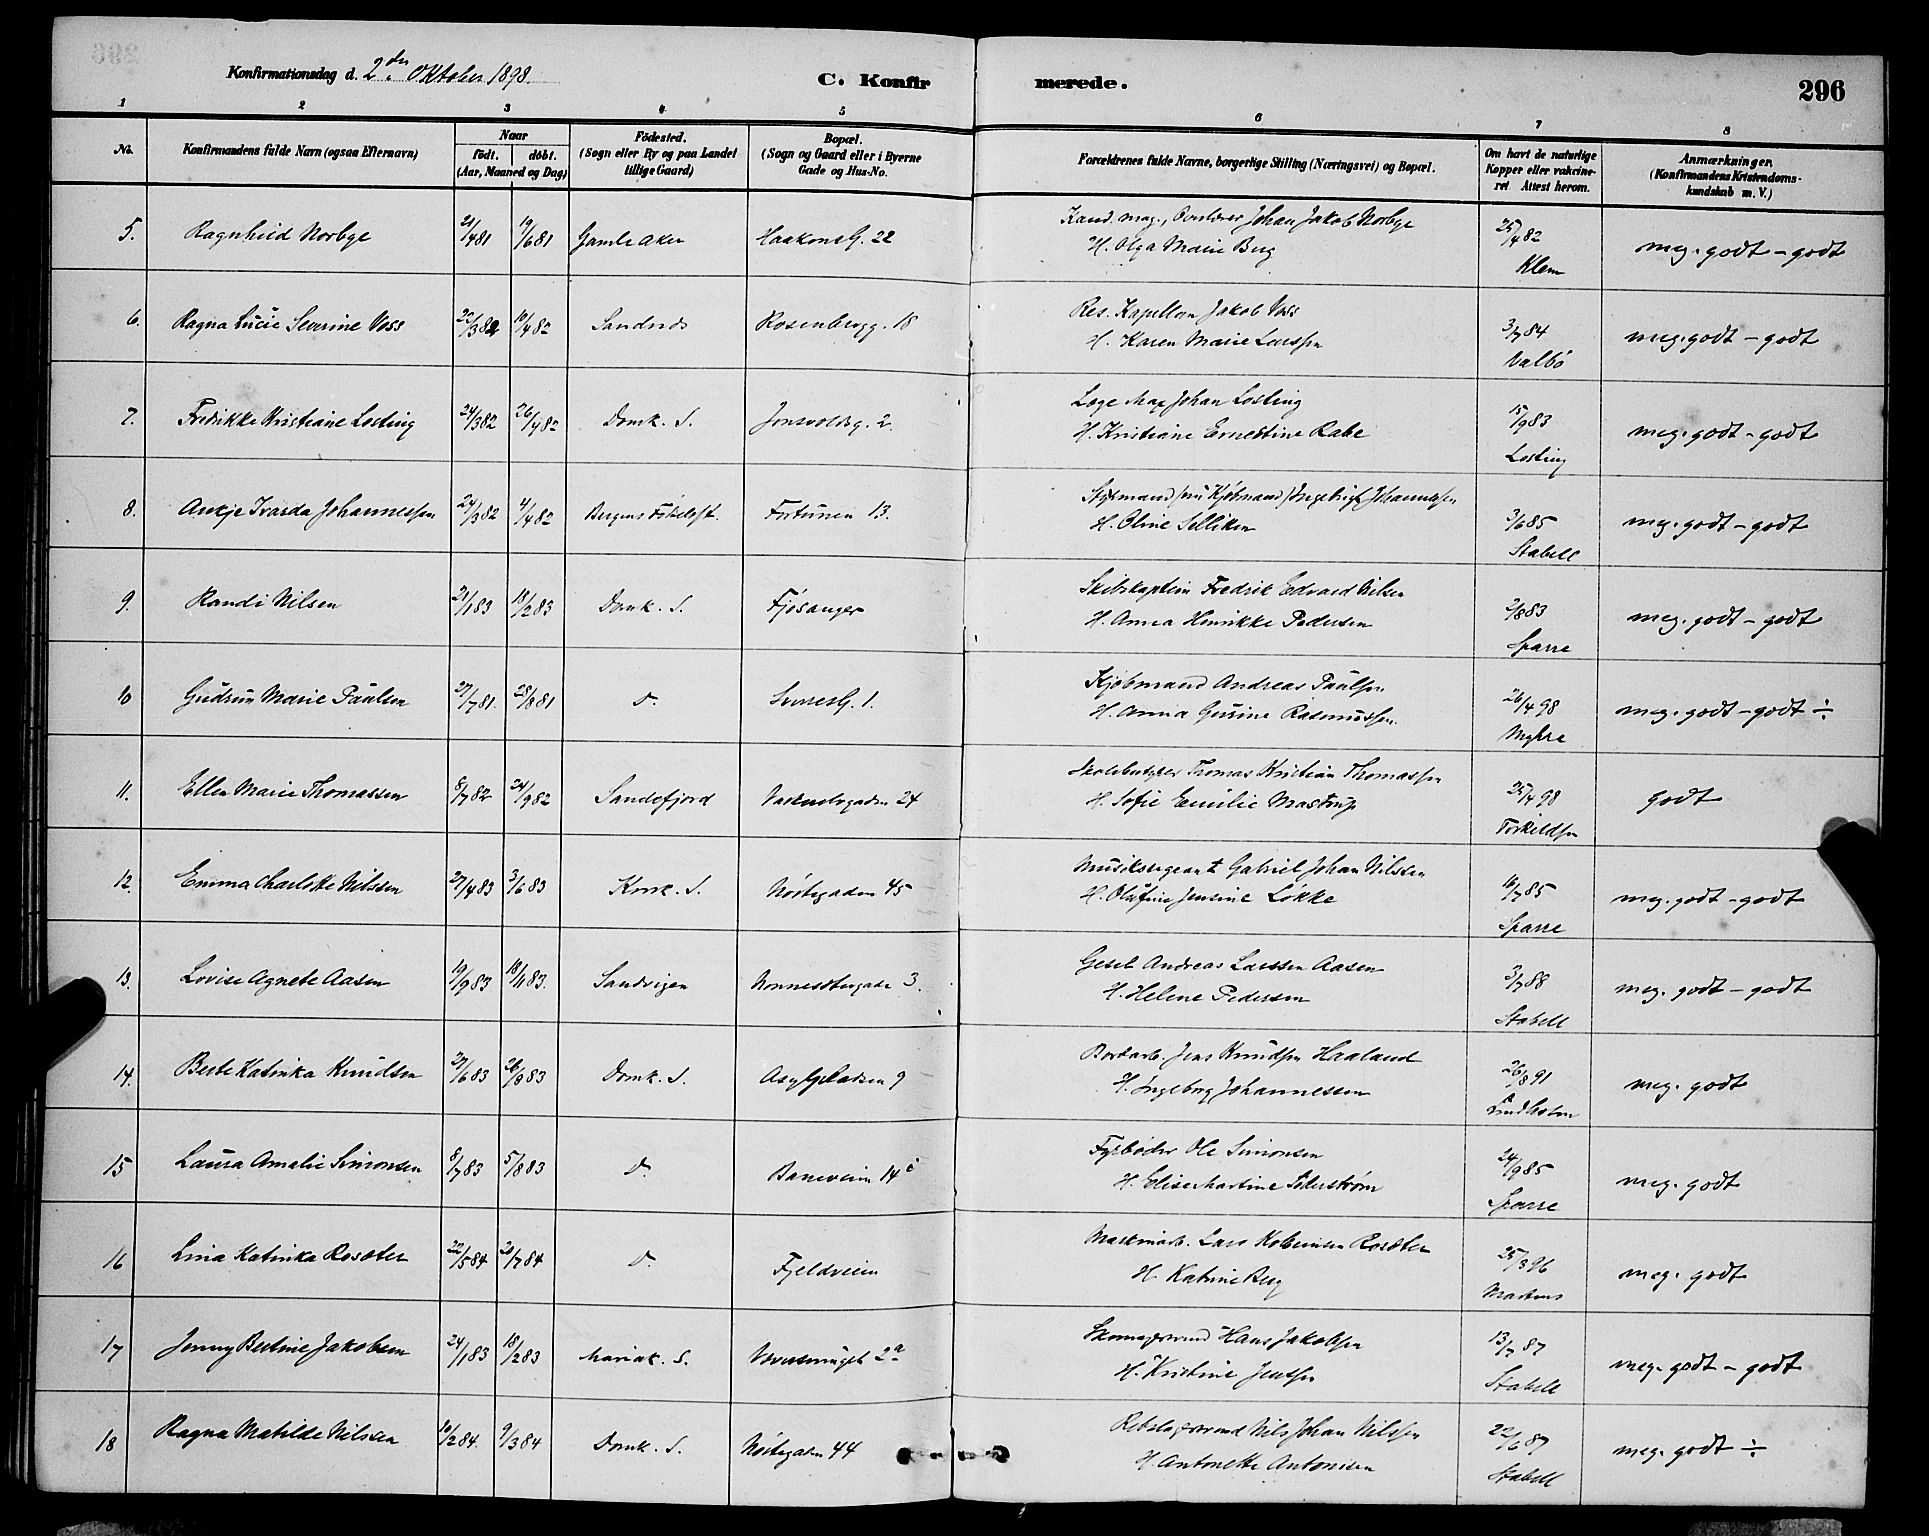 Konfirmationsdag d. 2den Oktober 1898.
C. Konfirmerede.
296
1 2 3 4 5 6 7 8
No.
Konfirmandens fulde Navn (ogsaa Efternavn)
Naar
födt. döbt.
(Aar, Maaned og Dag)
Födested.
(Sogn eller By og paa Landet
tillige Gaard)
Bopæl.
(Sogn og Gaard eller i Byerne
Gade og Hus-No.
Forældrenes fulde Navne, borgerlige Stilling (Næringsvei) og Bopæl.
Om havt de naturlige
Kopper eller vakcine-
ret. Attest herom.
Anmærkninger.
(Konfirmandens Kristendoms-
kundskab m. V.)
5. Ragnhild Norbye 21/4 81 19/6 81 Gamle Aker HaakonsG. 22 Kand. mag., Overlærer Johan Jakob Norbye 25/4 82 meg. godt - godt
H. Olga Marie Berg Klem
6. Ragna Lucie Severine Voss 22/3 82 10/4 82 Sandnes Rosenbergg. 18 Res. Kapellan Jakob Voss 3/7 84 meg. godt - godt
H. Karen Marie Larssen Valbö
7. Fredrikke Kristiane Losting 24/3 82 26/4 82 Domk. S. Jonsvoldsg. 2. Læge Max Johan Losting 15/9 83 meg. godt - godt
H. Kristiane Ernestine Rabe Losting
8. Ankje Ivarda Johannessen 24/3 82 4/4 82 Bergens Fødselsst. Fortunen 13. Ingebrigt Johannessen 3/6 85 meg. godt - godt
H. Oline Selliken Stabell
9. Randi Nilsen 21/1 83 18/2 83 Domk. S. Fjøsanger Skibskaptein Fredrik Edvard Nilsen 2/8 83 meg. godt - godt
H. Anna Henrikke Pedersen Sparre
10 Gudrun Marie Paulsen 27/7 81. 28/8 81 do. SverresG. 1. Kjøbmand Andreas Paulsen 26/4 98 meg. godt - godt ÷
H. Anna Gurine Rasmussen. Myhre
11. Ellen Marie Thomassen 8/7 82 24/9 82 Sandefjord Vaskerelvsgaden 24 Skolebestyrer Thomas Kristian Thomassen 25/4 98 godt
H. Sofie Emilie Mastrup Torkildsen
12. Emma Charlotte Nilssen 27/4 83 3/6 83 Korsk. S. Nöstegaden 45 Musiksergeant Gabriel Johan Nilssen 16/7 85 meg. godt - godt
H. Olufine Jensine Løkke Sparre
13. Lovise Agnete Aasen 19/9 83 18/11 83. Sandvigen Nonnestergade 3. Gesel Andreas Larssen Aasen 3/7 88 meg. godt - godt
H. Helene Pedersen Stabell
14. Berte Katinka Knudsen 27/6 83 26/8 83 Domk. S. Asylpladsen 9 Bordarb. Jens Knudsen Haaland 26/8 91 meg. godt
H. Ingeborg Johannessen Lindholm
15 Laura Amalie Simonsen 8/7 83 5/8 83 do. Baneveien 14c Fyrbøder Ole Simonsen 24/9 85 meg. godt
H. Elise Martine Söderstrøm Sparre
16 Lina Katinka Rosæter 22/5 84 20/7 84 do. Fjeldveien Maskinarb. Lars Kolbeinsen Rosæter 25/3 96 meg. godt
H. Katrine Berg Martens
17 Jenny Bertine Jakobsen 24/1 83 18/2 83 Mariak. S. Væversmuget 2a Skomagersvend Hans Jakobsen 13/7 87 meg. godt - godt
H. Kristine Jenssen Stabell
18 Ragna Matilde Nilssen 10/2 84. 9/3 84 Domk. S. Nöstegaden 44 Rebslagersvend Nils Johan Nilssen 22/6 87 meg. godt ÷
H. Antonette Antonisen Stabell